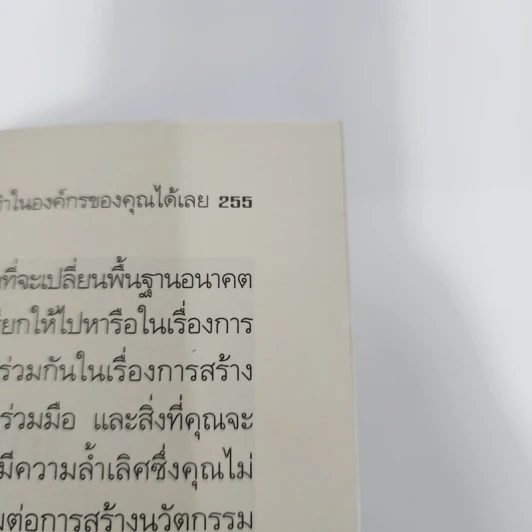 ในองค์กรของคุณได้เลย 255
ที่จะเปลี่ยนพื้นฐานอนาคต
ยกให้ไปหารือในเรื่องการ
ร่วมกันในเรื่องการสร้าง
ร่วมมือ และสิ่งที่คุณจะ
มีความล้ำเลิศซึ่งคุณไม่
ต่อการสร้างนวัตกรรม